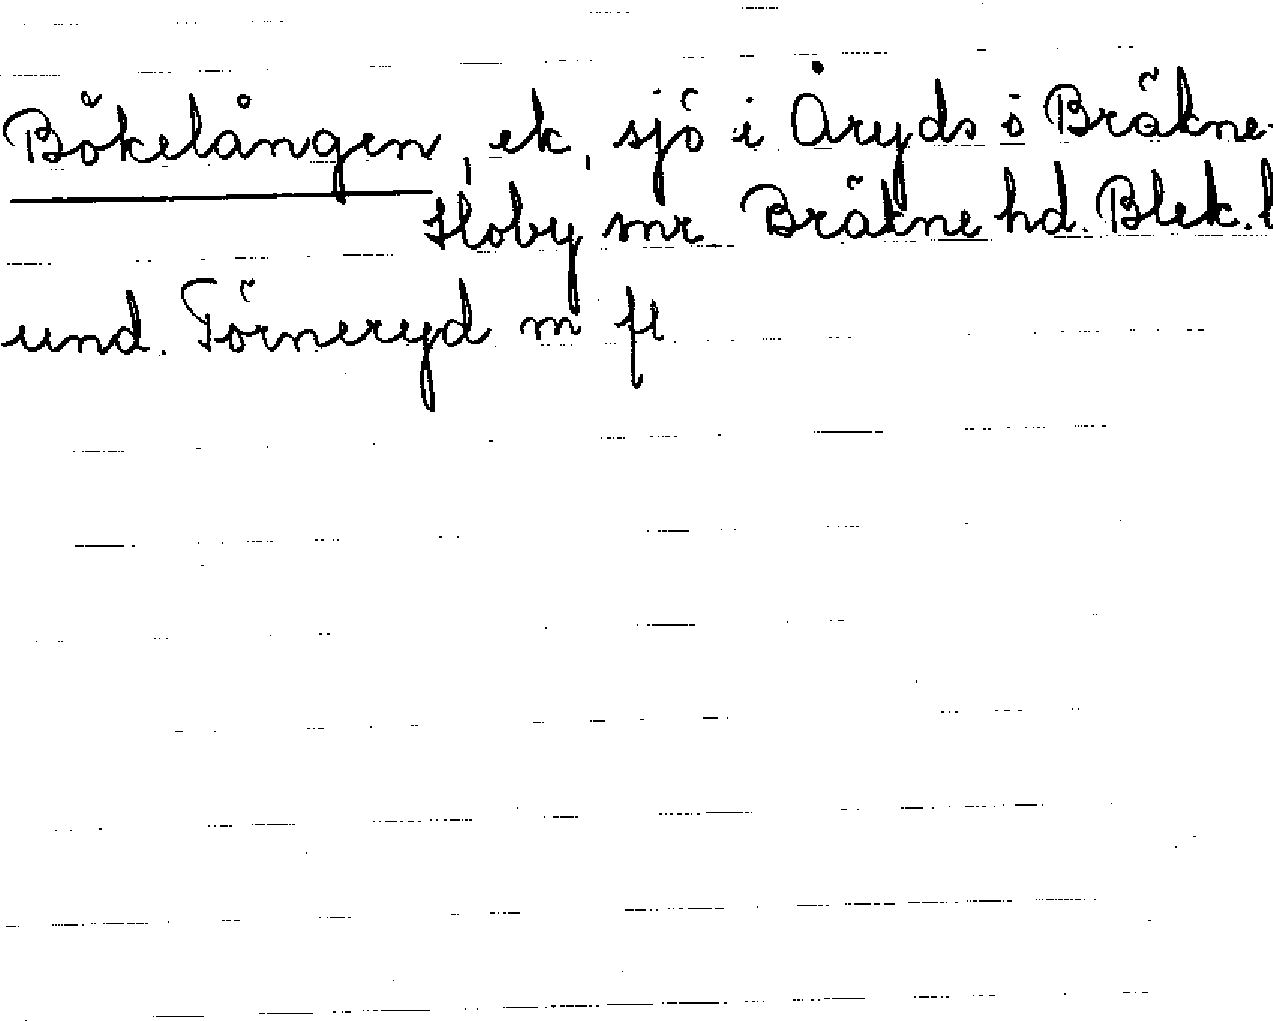 Bökelången, ek, sjö i Åryds o Bräkne-
Hoby snr Bräkne hd. Blek. l
und. Törneryd m fl